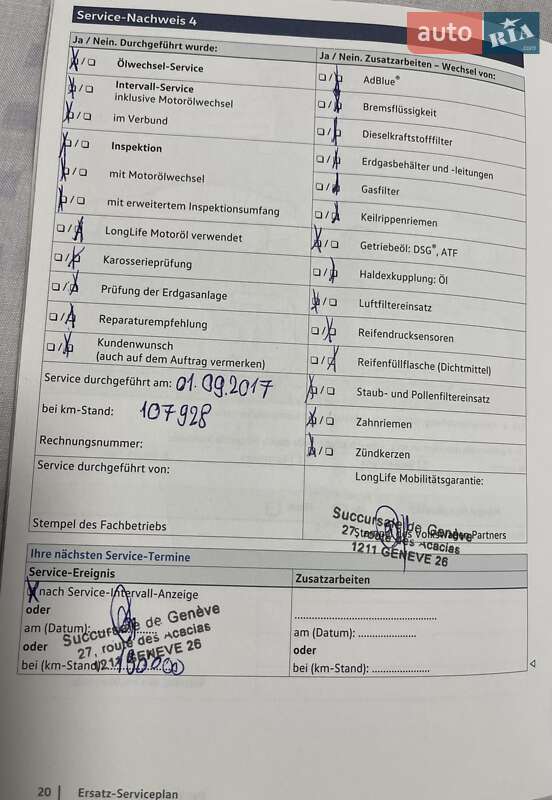 Service-Nachweis 4
auto RIA.com
Ja / Nein. Durchgeführt wurde:
Ölwechsel-Service
Intervall-Service
inklusive Motorölwechsel
im Verbund
Inspektion
mit Motorölwechsel
mit erweitertem Inspektionsumfang
LongLife Motoröl verwendet
Karosserieprüfung
Prüfung der Erdgasanlage
Reparaturempfehlung
Kundenwunsch
(auch auf dem Auftrag vermerken)
Service durchgeführt am: 01.09.2017
bei km-Stand: 107928
Rechnungsnummer:
Service durchgeführt von:
Stempel des Fachbetriebs
Ja / Nein. Zusatzarbeiten – Wechsel von:
AdBlue®
Bremsflüssigkeit
Dieselkraftstofffilter
Erdgasbehälter und -leitungen
Gasfilter
Keilrippenriemen
Getriebeöl: DSG®, ATF
Haldexkupplung: Öl
Luftfiltereinsatz
Reifendrucksensoren
Reifenfüllflasche (Dichtmittel)
Staub- und Pollenfiltereinsatz
Zahnriemen
Zündkerzen
LongLife Mobilitätsgarantie:
Succursale de Genève
27, route des Acacias
1211 GENEVE 26
Stempel des Volkswagen Partners
Ihre nächsten Service-Termine
Service-Ereignis
nach Service-Intervall-Anzeige
oder
am (Datum):
oder
bei (km-Stand):
Succursale de Genève
27, route des Acacias
1211 GENEVE 26
Zusatzarbeiten
am (Datum): ....................
oder
bei (km-Stand): ....................
20 | Ersatz-Serviceplan